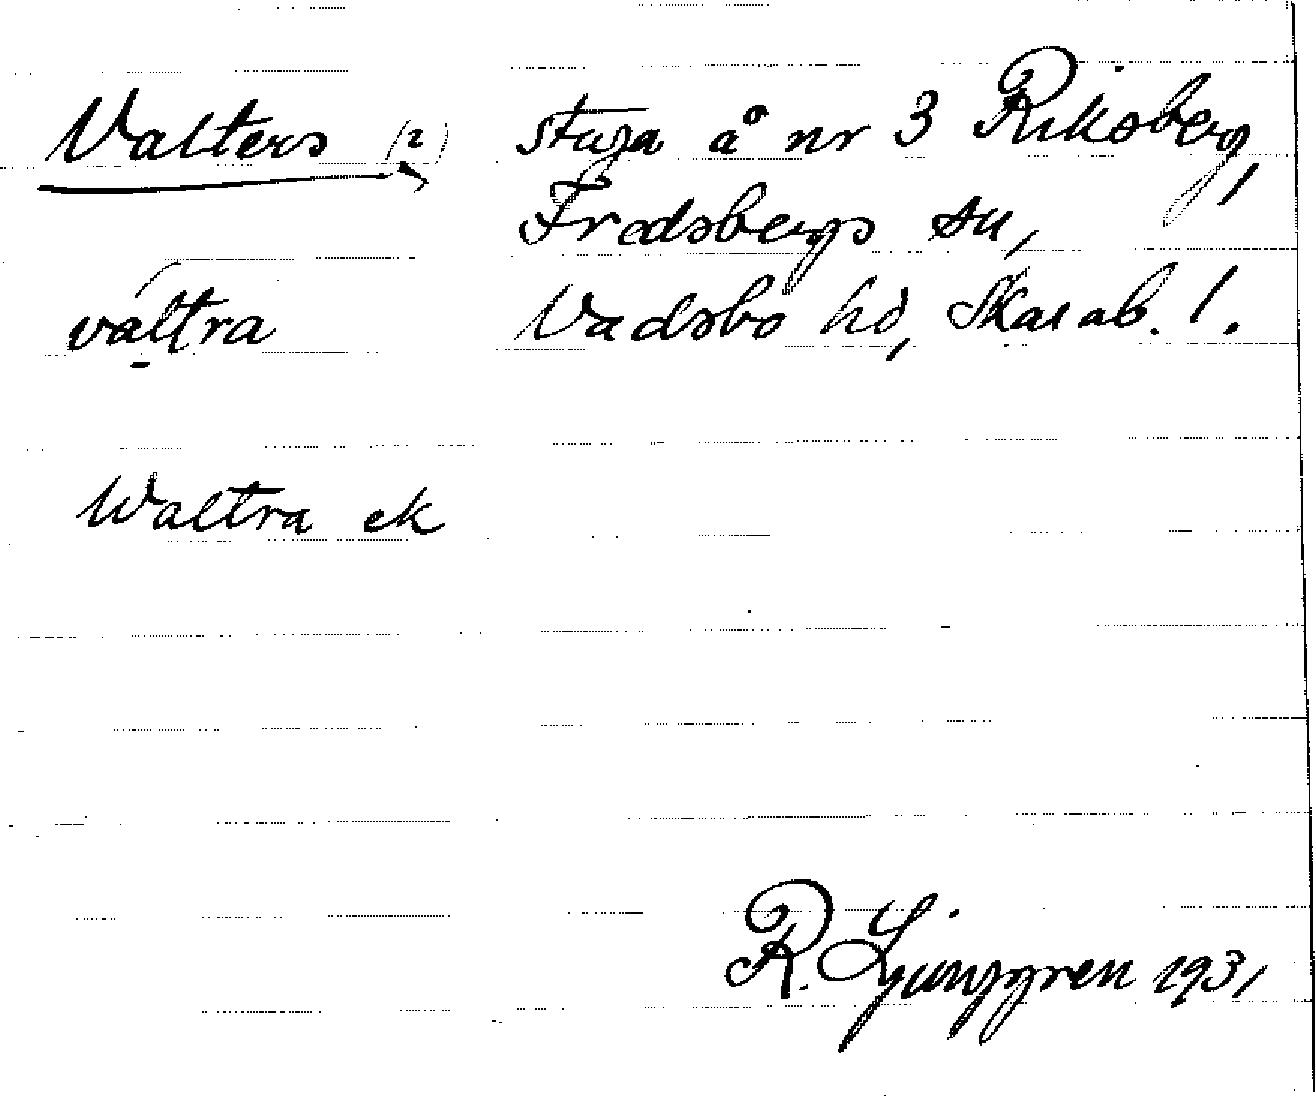 Valters (2) stuga å nr 3 Riksberg,
Fredsbergs sn,
valtra Vadsbo hd, Skarab. l.
Waltra ek
R. Ljunggren 1931